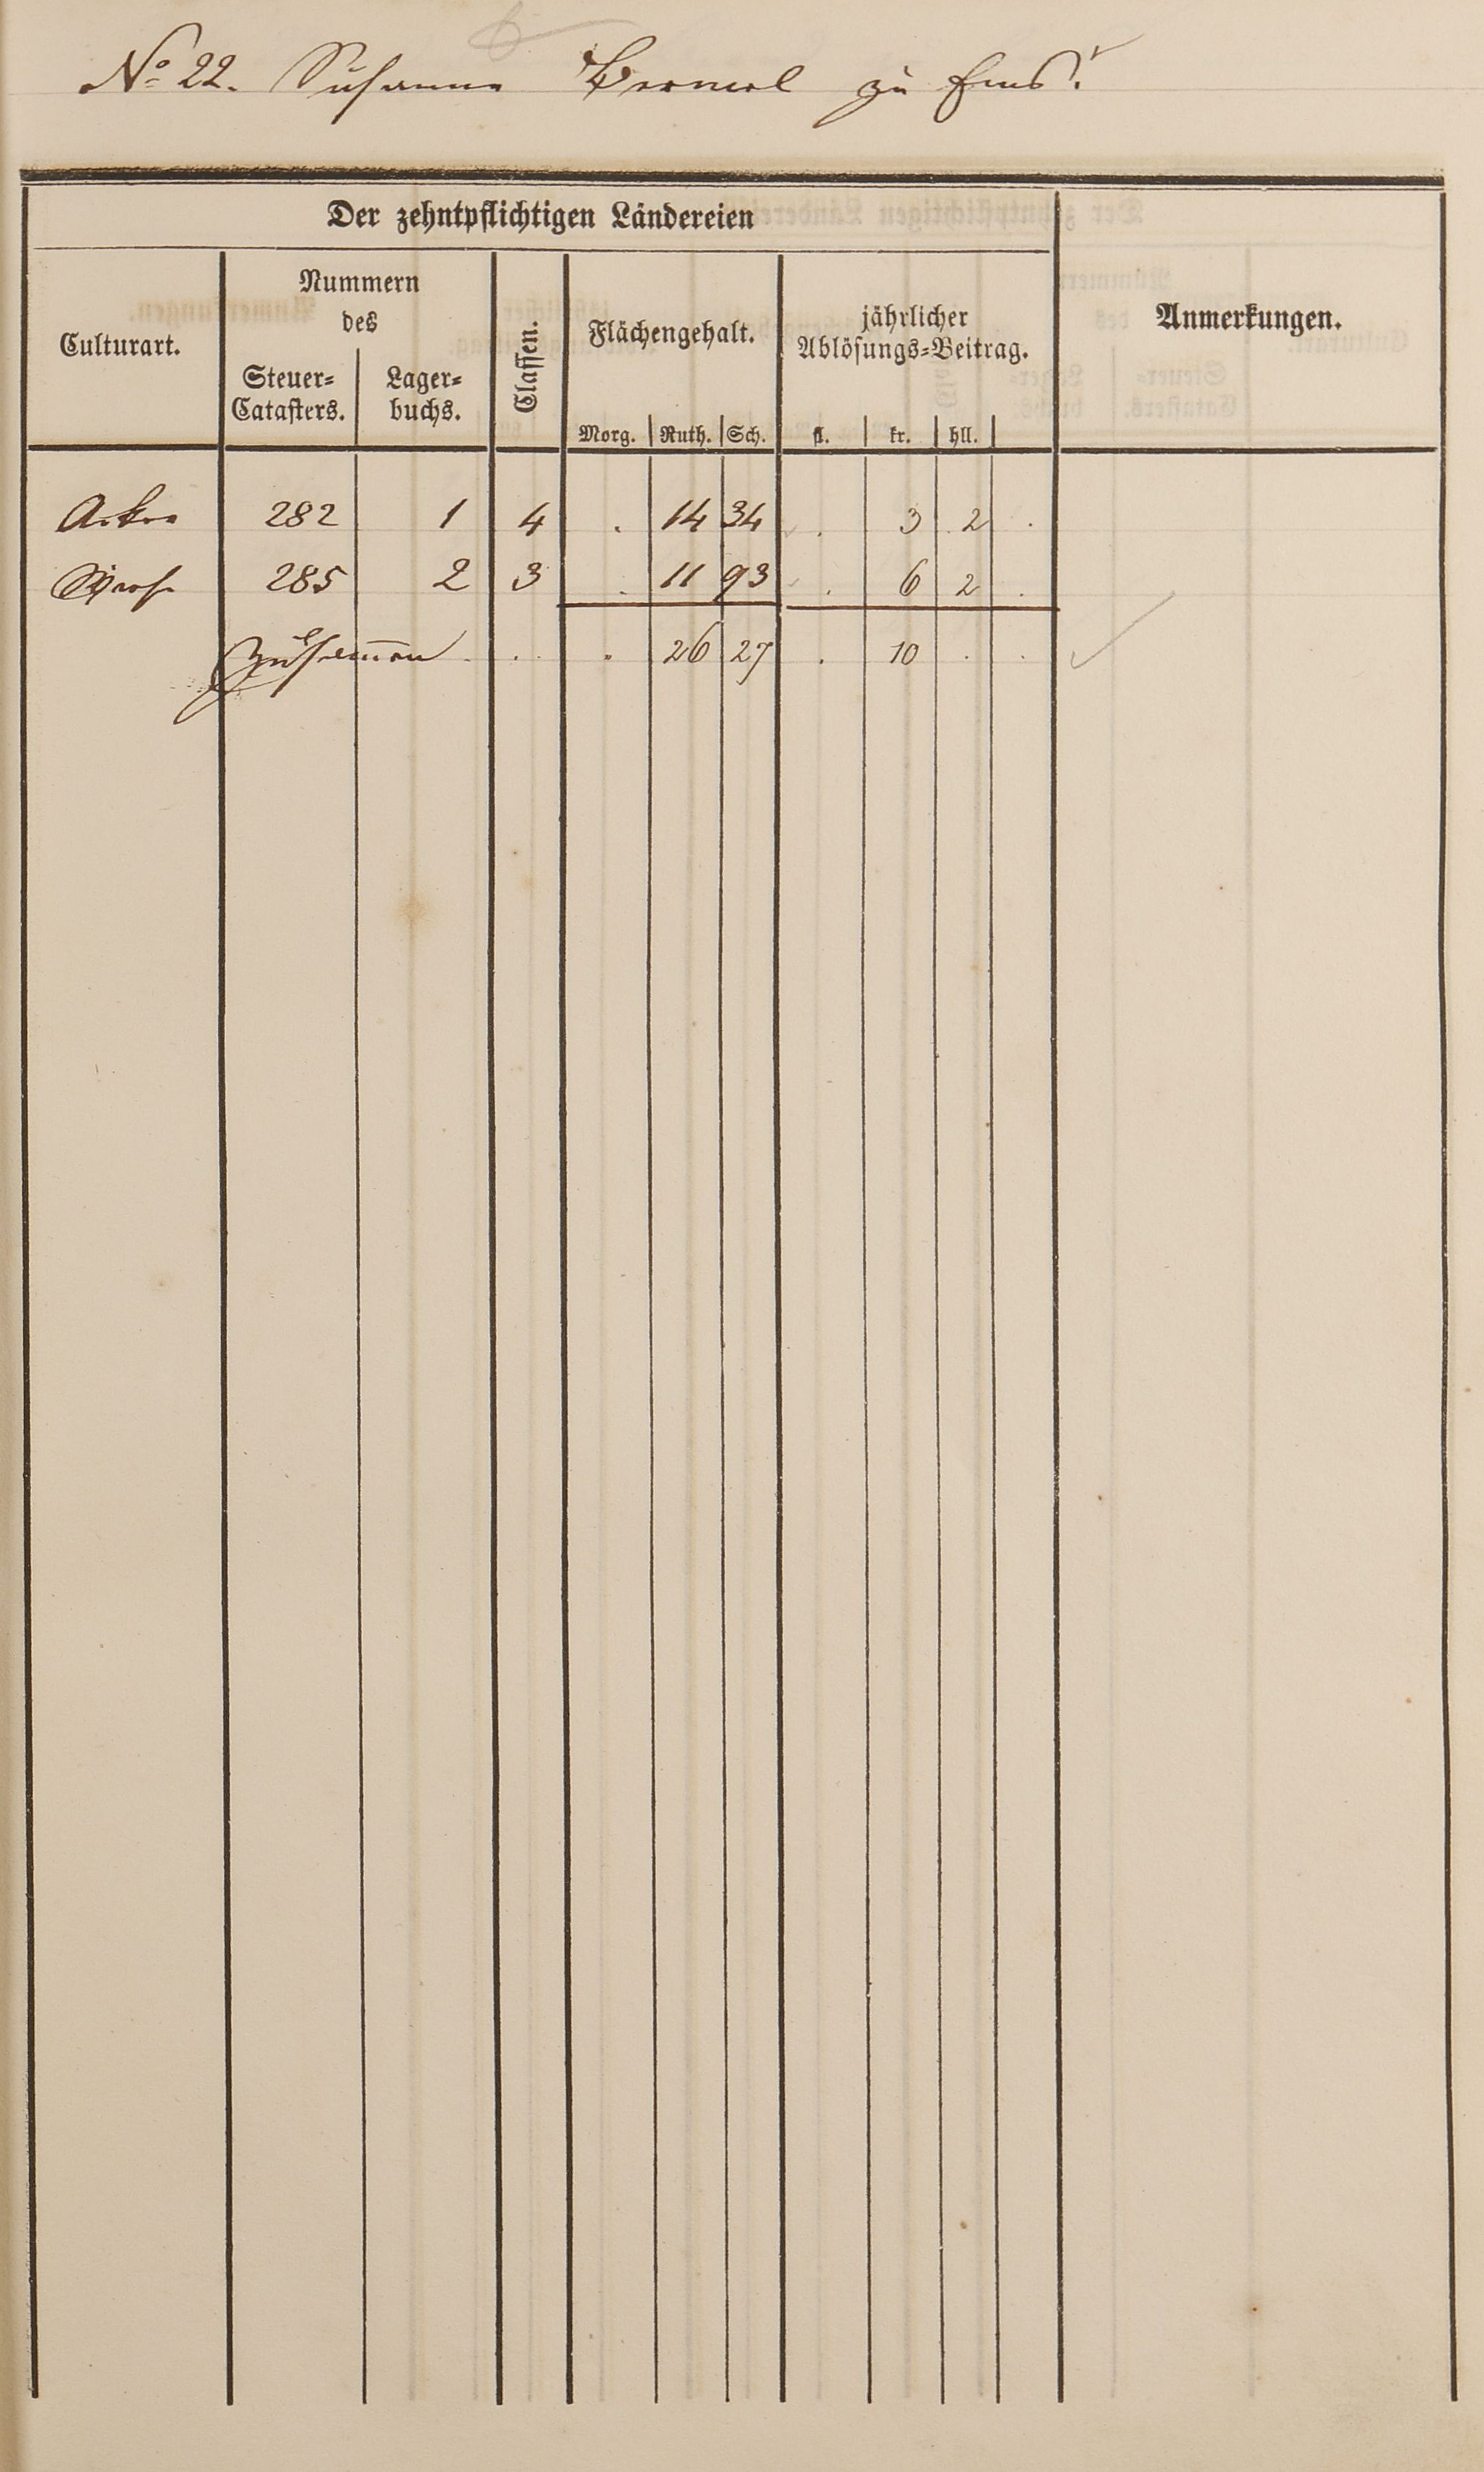 No 22. Susanna Bermel zu Ems.
Der zehntpflichtigen Ländereien
Culturart.
Nummern
des
Steuer-
Catasters.
Lager-
buchs.
Classen.
Flächengehalt.
Morg. Ruth. Sch.
jährlicher
Ablösungs-Beitrag.
fl. kr. hll.
Anmerkungen.
Acker 282 1 4 . 14 34 . 3 2 .
285 2 3 . 11 93 . 6 2 .
Zusammen . . . 26 27 . 10 . .